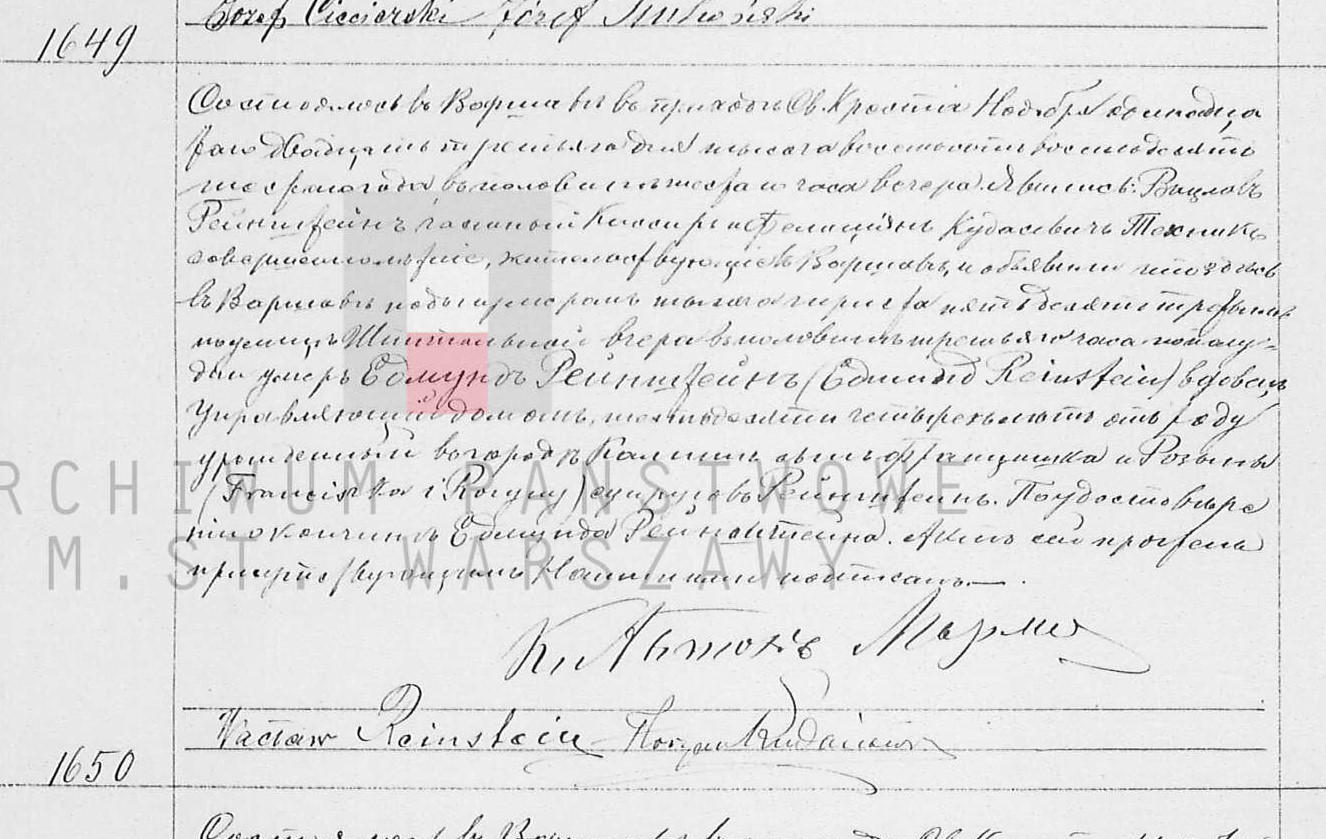 Józef Ciecierski Józef
1649
Состоялось въ Варшавѣ въ приходѣ Св. Креста Ноября одиннадца
таго двадцать третьяго дня тысяча восемьсотъ восемьдесятъ
года въ половинѣ шестаго часа вечера. Явились: Вацлавъ
Рейнштейнъ частный Кассиръ и Фелиціянъ Кудасевичъ Техникъ
совершеннолѣтніе, жительствующіе въ Варшавѣ, и объявили что здѣсь
въ Варшавѣ подъ нумеромъ тысяча триста пятьдесятъ третьимъ
по улицѣ Шпитальной вчера въ половинѣ третьяго часа пополу=
дни умеръ Едмундъ Рейнштейнъ (Edmund Reinstein) вдовецъ,
Управляющій домомъ, шестьдесяти четырехъ лѣтъ отъ роду
урожденный въ городѣ сынъ Францишка и Розыны
(Franciszka i Rozyny) супруговъ Рейнштейнъ. По удостовѣре
ніи о кончинѣ Едмунда Рейнштейна. Актъ сей прочтенъ
присутствующимъ Нами и ими подписанъ.—.
ARCHIWUM PAŃSTWOWE
M.ST. WARSZAWY
Кс. Антонъ
Wacław Reinstein Kudasiewicz
1650
Состоялось въ Варшавѣ въ